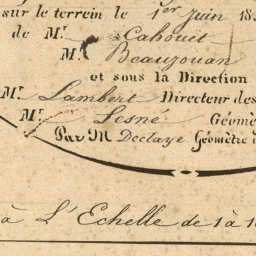 sûr le terrein le 1er Juin 18
de Mr. Cahouët
Mr. Beaugouan
et sous la Direction
Mr. Lambert Directeur des
Mr. Lesné Géomè
Par M Deelaye Géomètre d
à L'Echelle de 1 à 1